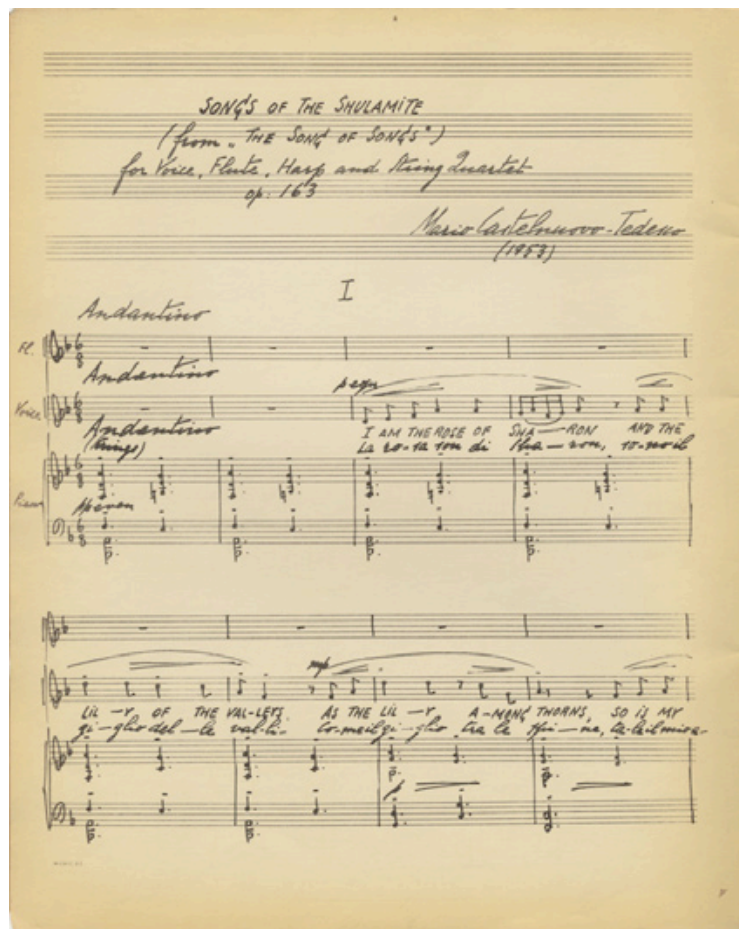 SONGS OF THE SHULAMITE
(from „ THE SONG OF SONGS")
for Voice, Flute, Harp and String Quartet
op: 163
Mario Castelnuovo-Tedesco
(1953)
I
Andantino
Fl.
Andantino
Voice
I AM THE ROSE OF SHA—RON AND THE
Andantino
(Strings)
La ro-sa son di Sha—ron, so-no il
Piano
LIL—Y OF THE VAL-LEYS. AS THE LIL—Y A-MONG THORNS, SO IS MY
gi-glio del-le val-li. Co-me il gi-glio tra le spi-ne,
mp